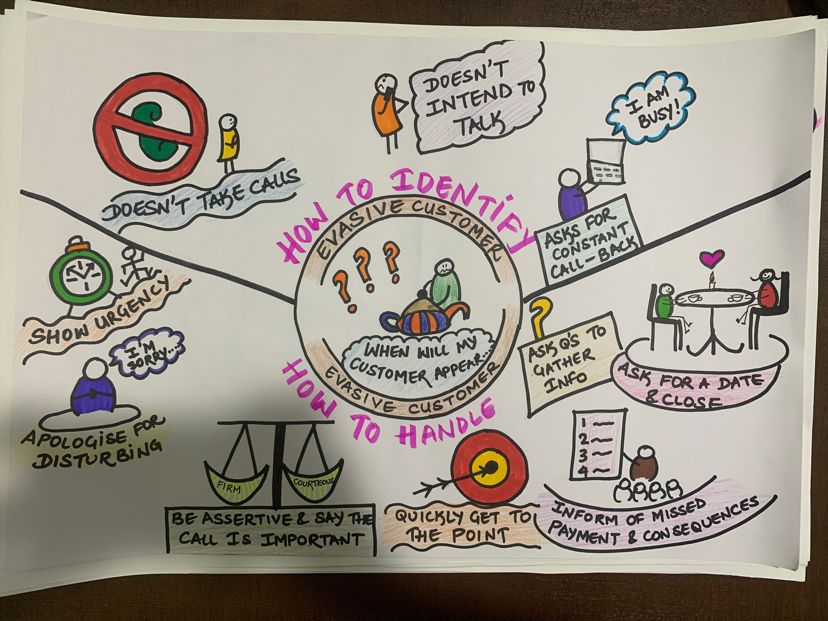 DOESN'T TAKE CALLS
DOESN'T
INTEND TO
TALK
I AM
BUSY!
ASKS FOR
CONSTANT
CALL-BACK
HOW TO IDENTIFY
EVASIVE CUSTOMER
???
WHEN WILL MY
CUSTOMER APPEAR...
EVASIVE CUSTOMER
HOW TO HANDLE
SHOW URGENCY
I'M
SORRY...
APOLOGISE FOR
DISTURBING
FIRM
COURTEOUS
BE ASSERTIVE & SAY THE
CALL IS IMPORTANT
QUICKLY GET TO
THE POINT
1
2
3
4
INFORM OF MISSED
PAYMENT & CONSEQUENCES
?
ASK Q'S TO
GATHER
INFO
ASK FOR A DATE
& CLOSE